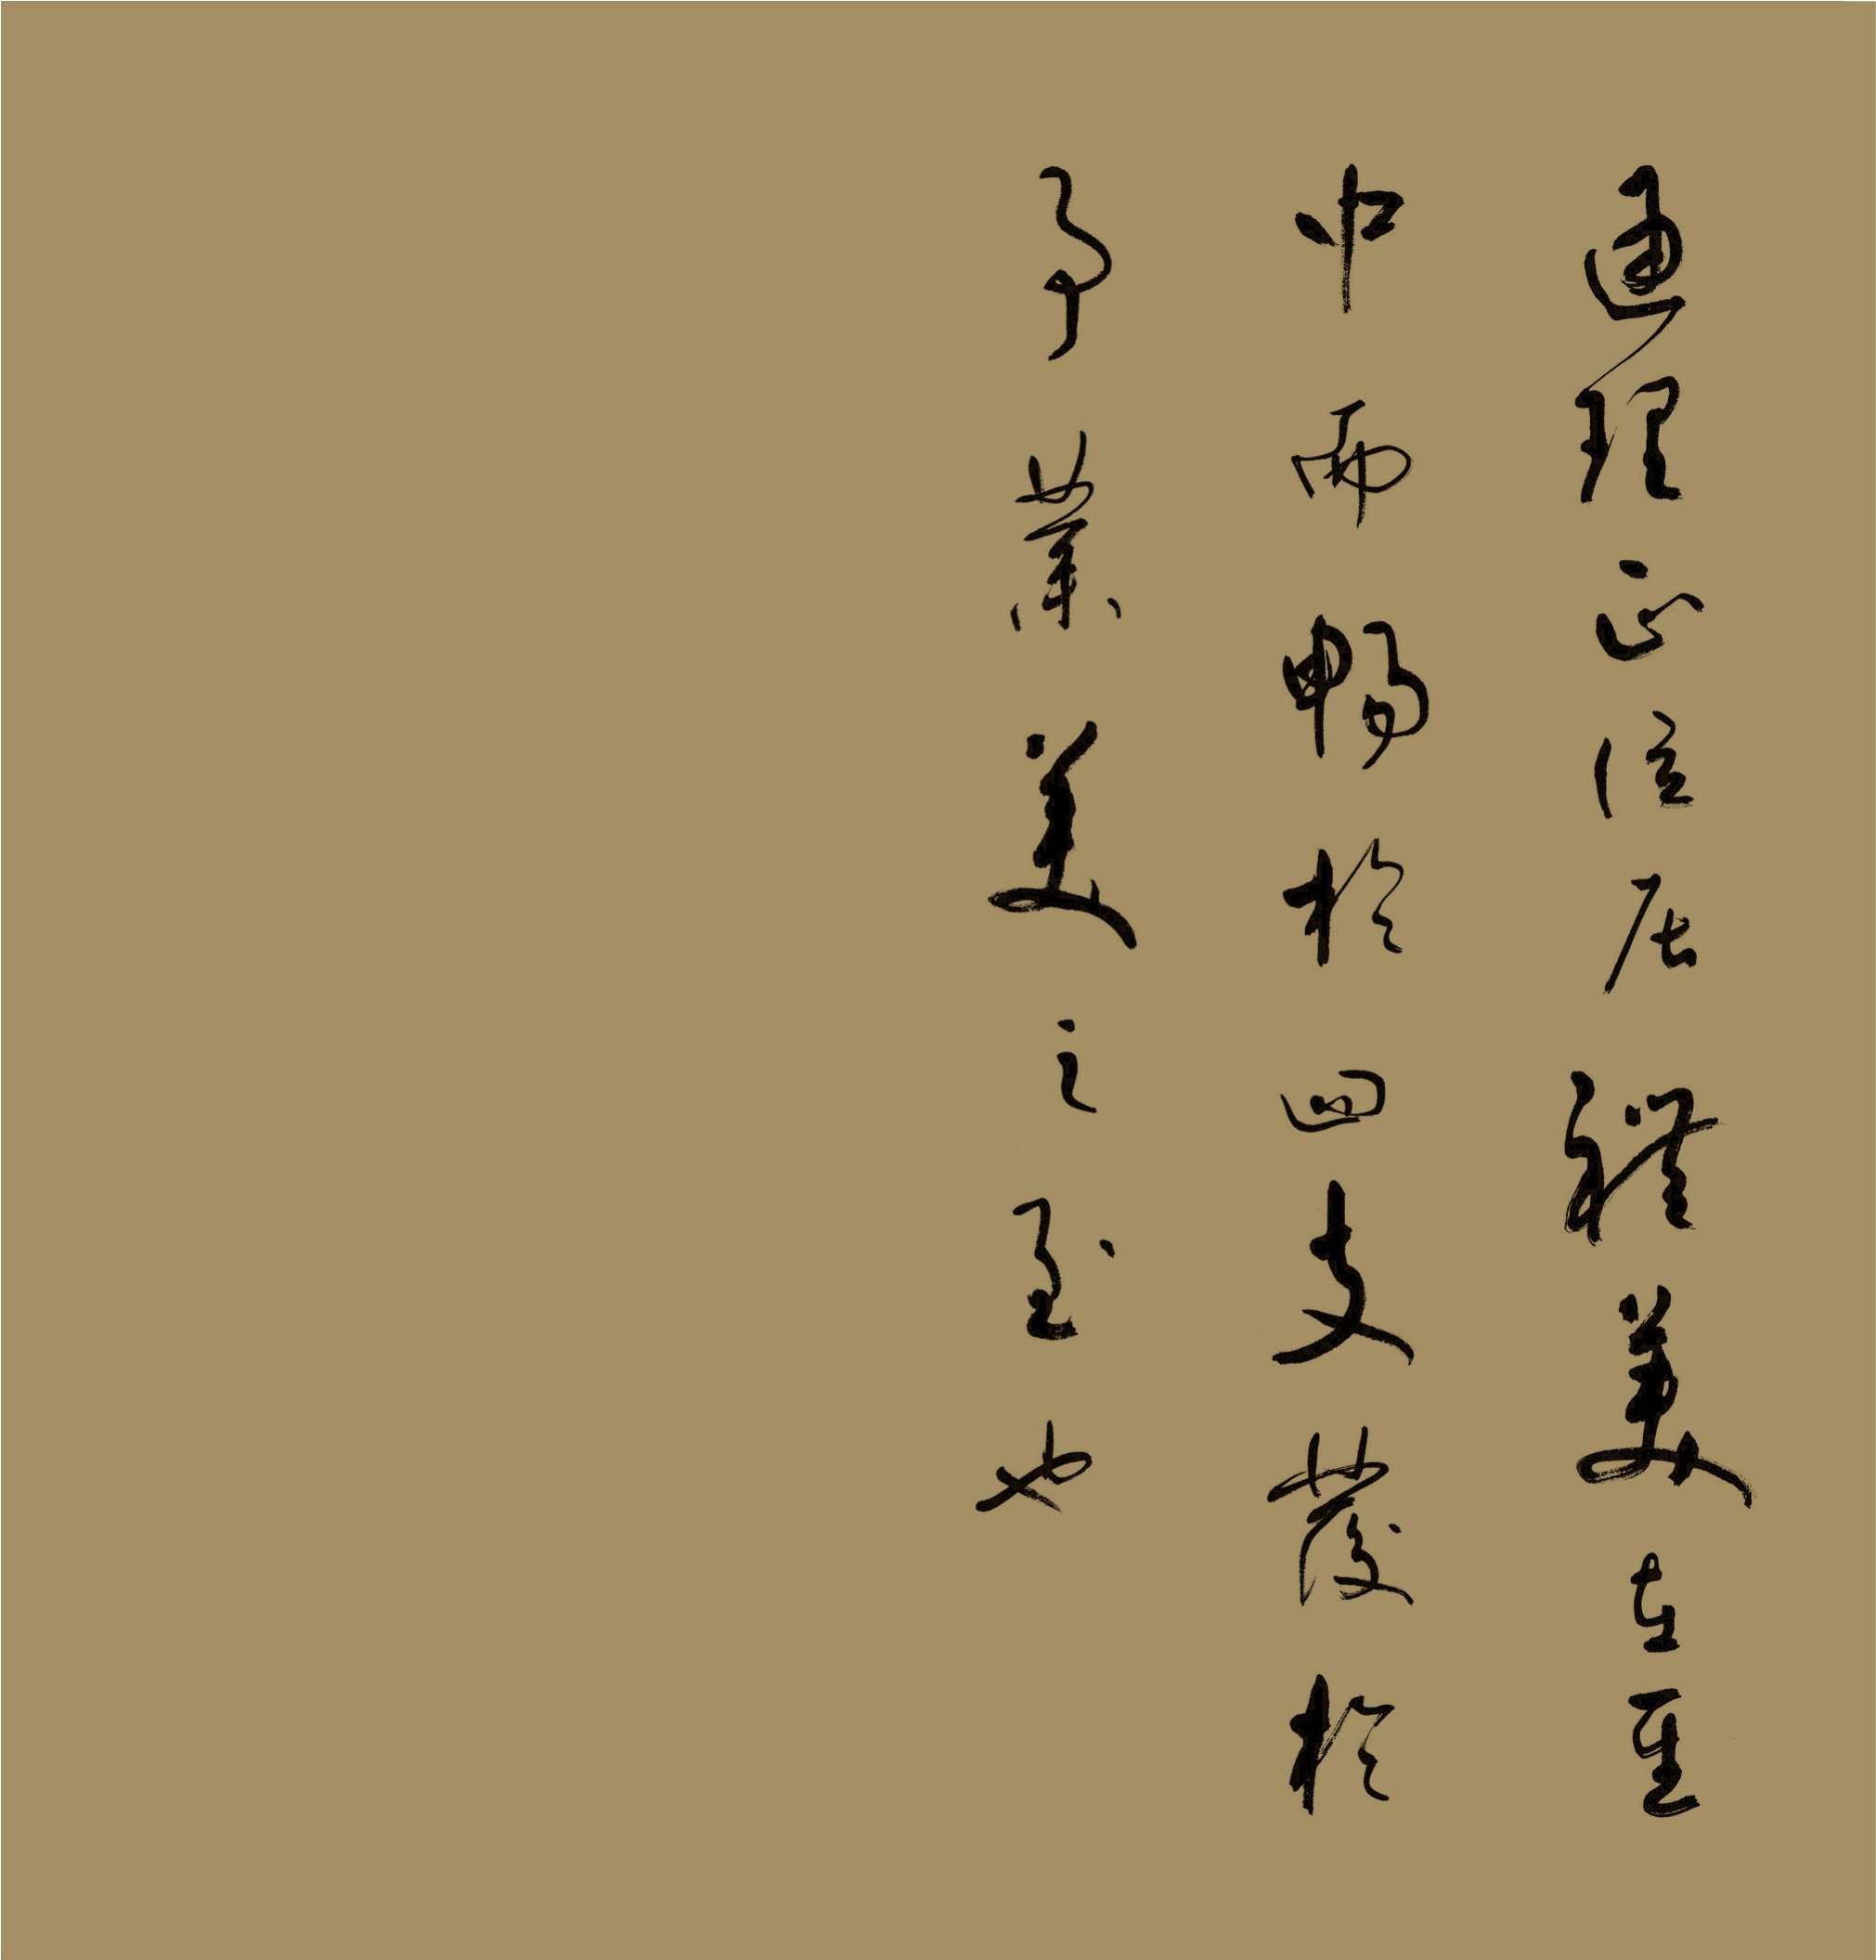 通理正位居體美在其
中而暢於四支發於
事業美之至也